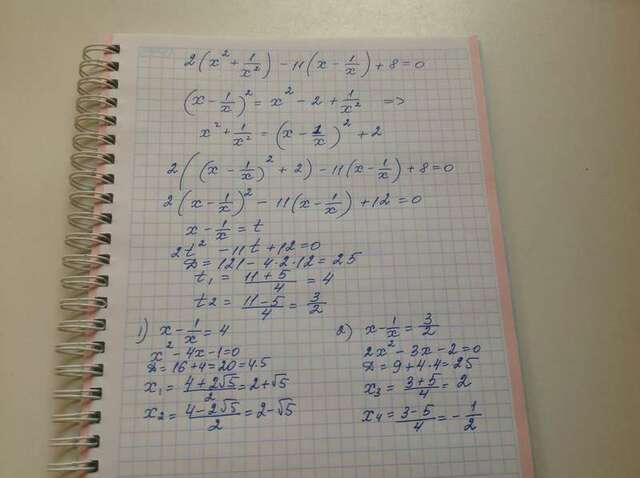 2(x² + 1/x²) - 11(x - 1/x) + 8 = 0
(x - 1/x)² = x² - 2 + 1/x² =>
x² + 1/x² = (x - 1/x)² + 2
2((x - 1/x)² + 2) - 11(x - 1/x) + 8 = 0
2(x - 1/x)² - 11(x - 1/x) + 12 = 0
x - 1/x = t
2t² - 11t + 12 = 0
D = 121 - 4·2·12 = 25
t₁ = (11+5)/4 = 4
t₂ = (11-5)/4 = 3/2
1) x - 1/x = 4
x² - 4x - 1 = 0
D = 16 + 4 = 20 = 4·5
x₁ = (4+2√5)/2 = 2+√5
x₂ = (4-2√5)/2 = 2-√5
2) x - 1/x = 3/2
2x² - 3x - 2 = 0
D = 9 + 4·4 = 25
x₃ = (3+5)/4 = 2
x₄ = (3-5)/4 = -1/2